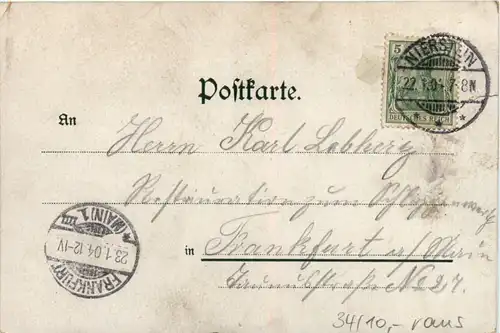 5
DEUTSCHES REICH
NIERSTEIN
22.1.04 7-8N
Postkarte.
An
Herrn Karl
Restauration zum
in Frankfurt a/Main
No 27.
FRANKFURT (MAIN) 1
23.1.04 12-1V
34/10,- raus